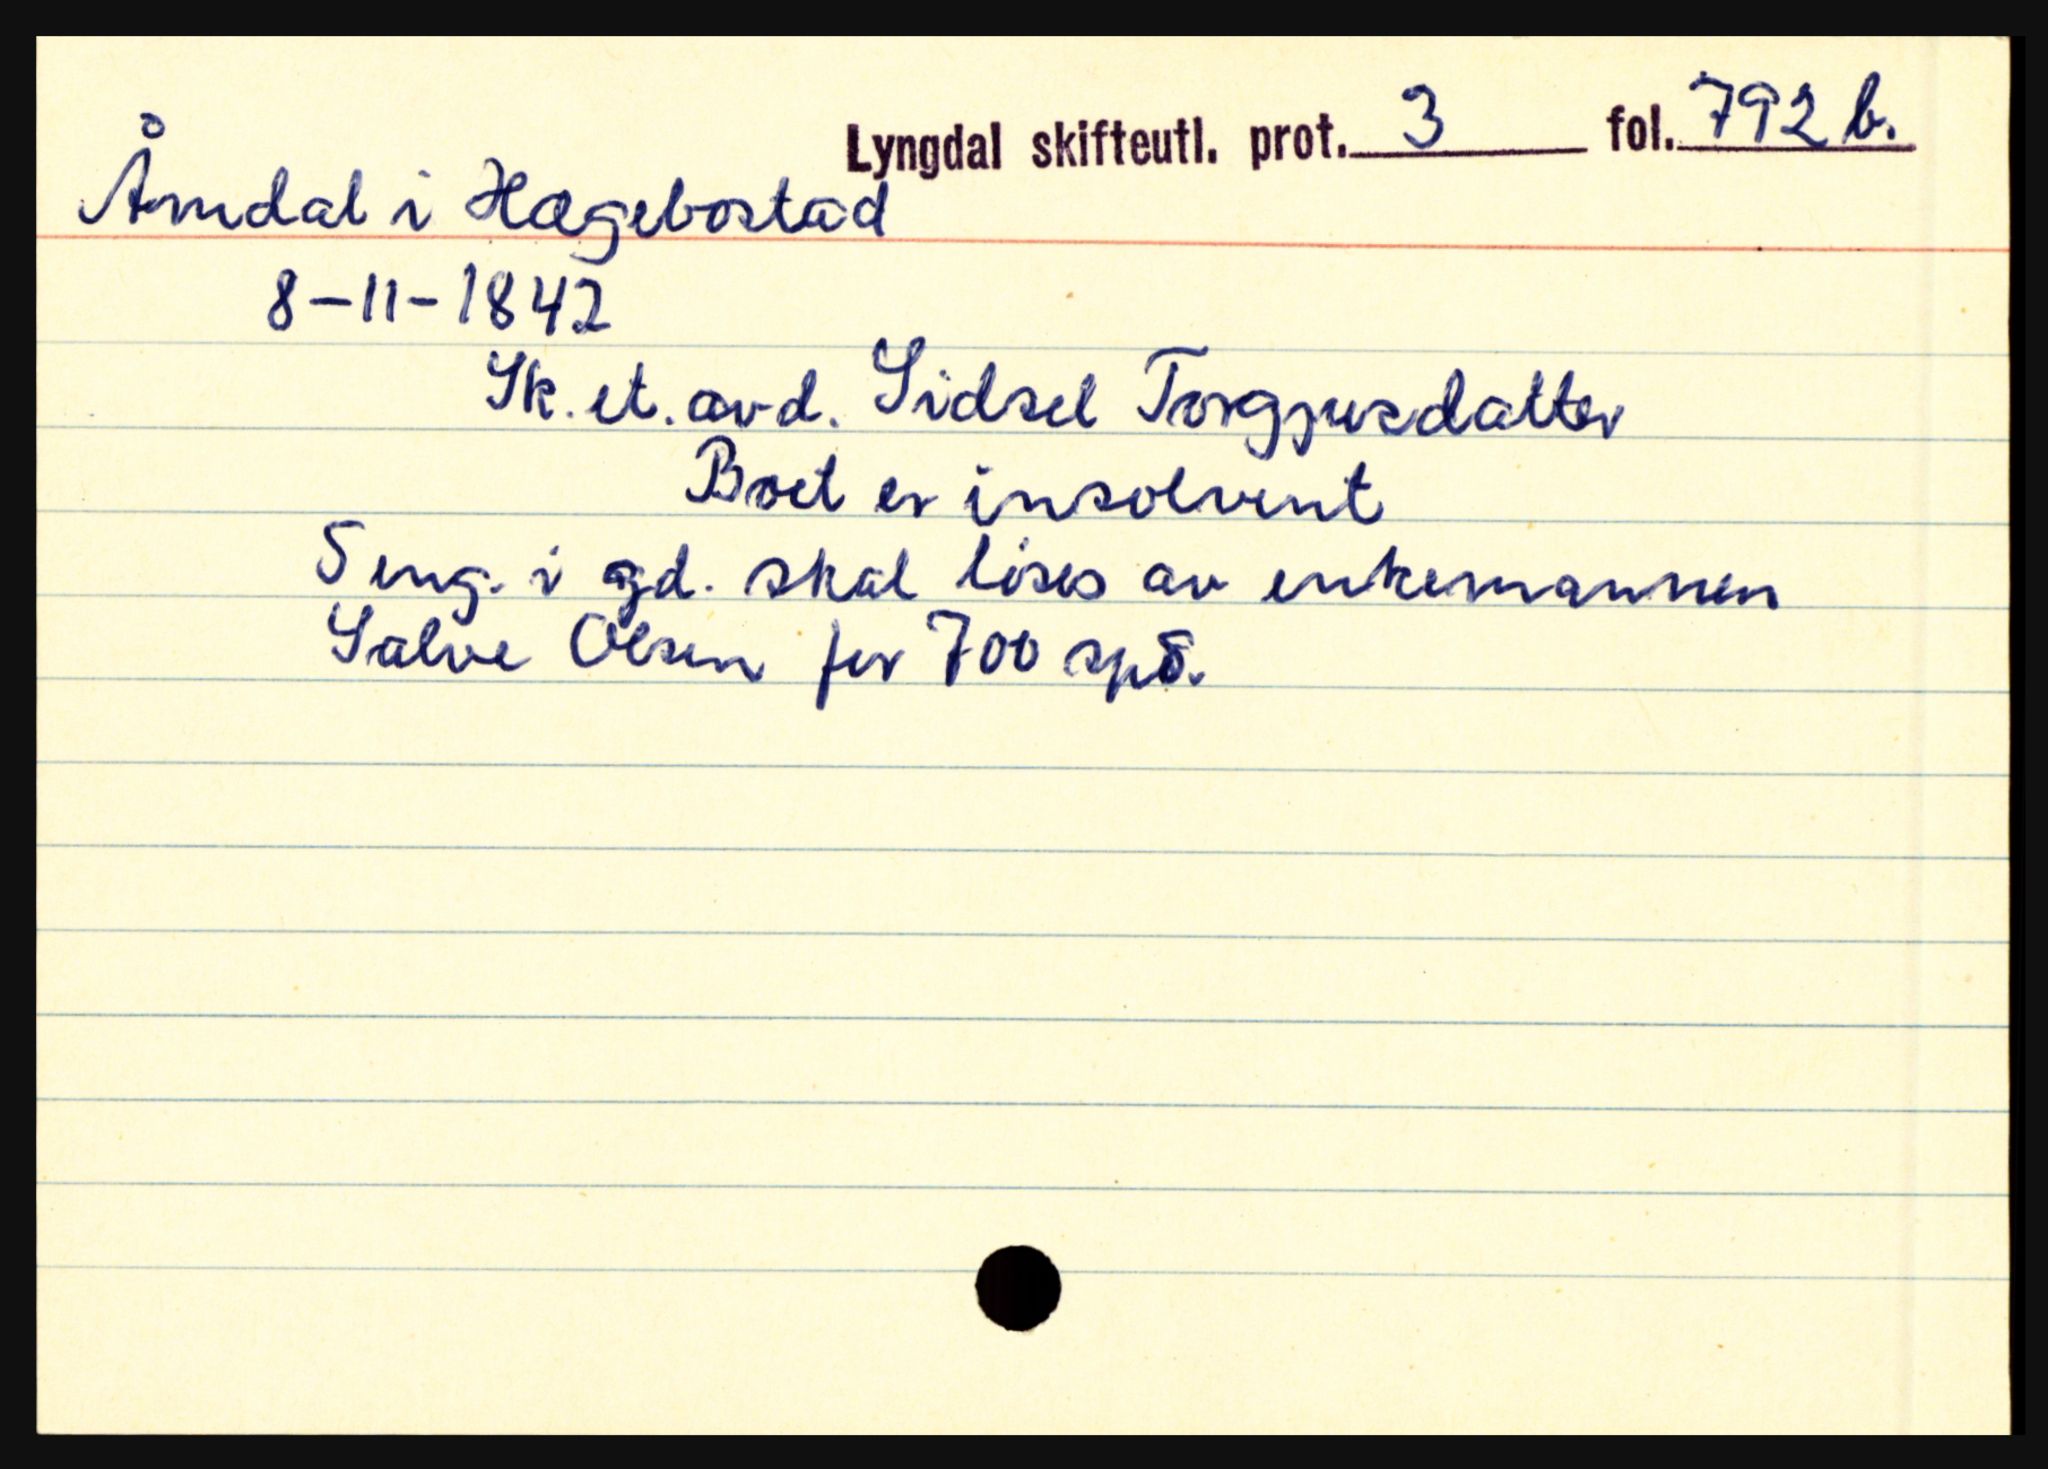 Lyngdal skifteutl. prot. 3 fol. 792 b.
Åmdal i Hægebostad
8-11-1842
Sk. et. avd. Sidsel Torgjusdatter
Boet er insolvent
5 eng. i gd. skal løses av enkemannen
Salve Olsen for 700 spd.